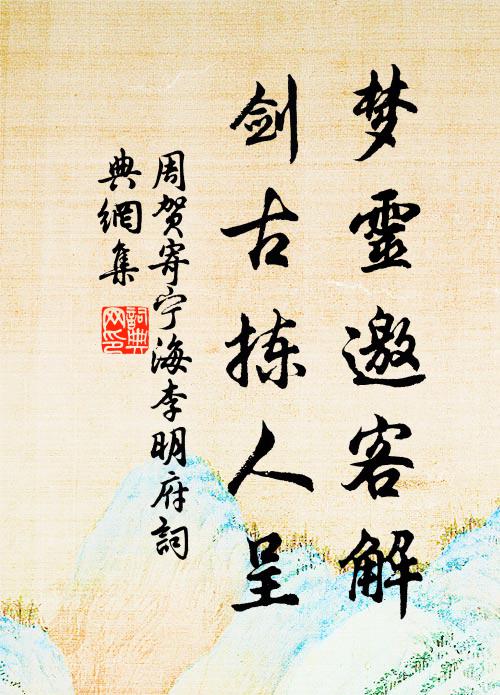 梦靈邀客解
剑古拣人呈
周贺寄宁海李明府詞
典網集
詞典网印